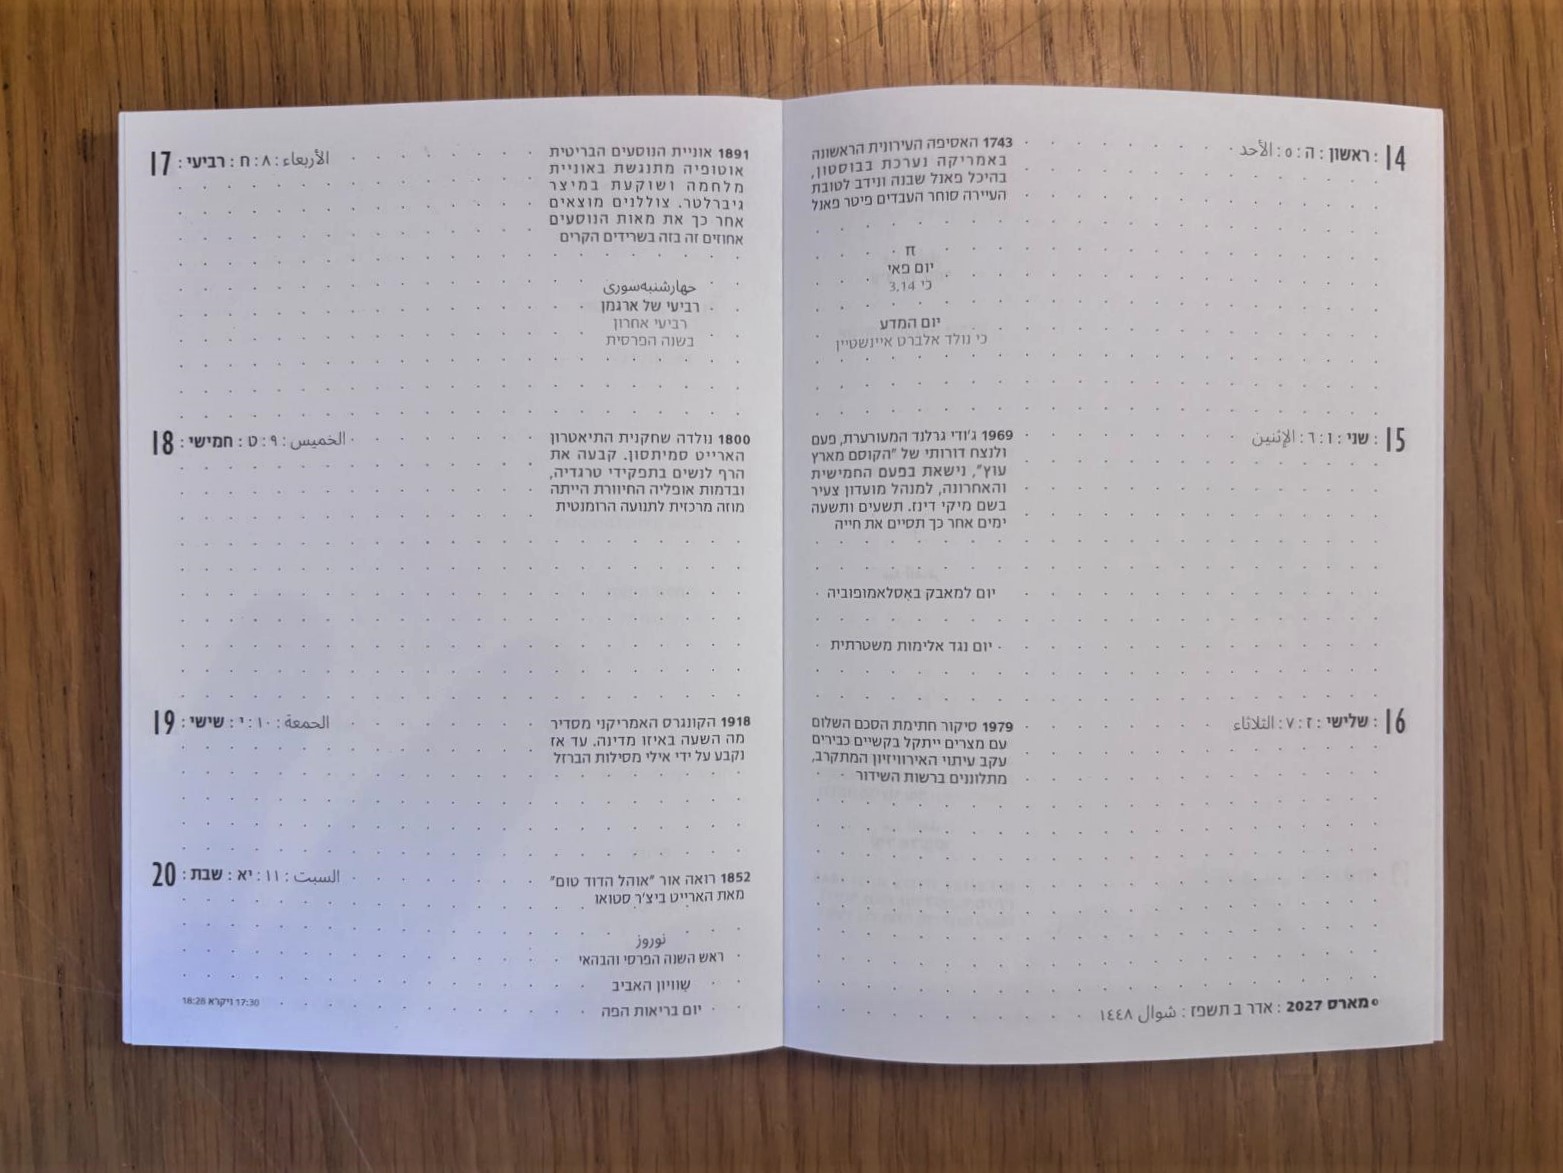 14 : ראשון : ה : ٥ : الأحد
1743 האסיפה העירונית הראשונה
באמריקה נערכת בבוסטון,
בהיכל פאנל שבנה ונידב לטובת
העיירה סוחר העבדים פיטר פאנל
π
יום פאי
כי 3,14
יום המדע
כי נולד אלברט איינשטיין
15 : שני : ו : ٦ : الإثنين
1969 ג'ודי גרלנד המעורערת, פעם
ולנצח דורותי של "הקוסם מארץ
עוץ", נישאת בפעם החמישית
והאחרונה, למנהל מועדון צעיר
בשם מיקי דינז. תשעים ותשעה
ימים אחר כך תסיים את חייה
יום למאבק באִסלאמופוביה
יום נגד אלימות משטרתית
16 : שלישי : ז : ٧ : الثلاثاء
1979 סיקור חתימת הסכם השלום
עם מצרים ייתקל בקשיים כבירים
עקב עיתוי האירוויזיון המתקרב,
מתלוננים ברשות השידור
מארס 2027 : אדר ב תשפז : شوال ١٤٤٨
17 : רביעי : ח : ٨ : الأربعاء
1891 אוניית הנוסעים הבריטית
אוטופיה מתנגשת באוניית
מלחמה ושוקעת במיצר
גיברלטר. צוללנים מוצאים
אחר כך את מאות הנוסעים
אחוזים זה בזה בשרידים הקרים
چهارشنبه‌سوری
רביעי של ארגמן
רביעי אחרון
בשנה הפרסית
18 : חמישי : ט : ٩ : الخميس
1800 נולדה שחקנית התיאטרון
הארייט סמיתסון. קבעה את
הרף לנשים בתפקידי טרגדיה,
ובדמות אופליה החיוורת הייתה
מוזה מרכזית לתנועה הרומנטית
19 : שישי : י : ١٠ : الجمعة
1918 הקונגרס האמריקני מסדיר
מה השעה באיזו מדינה. עד אז
נקבע על ידי אילי מסילות הברזל
20 : שבת : יא : ١١ : السبت
1852 רואה אור "אוהל הדוד טום"
מאת הארייט ביצ'ר סטואו
نوروز
ראש השנה הפרסי והבהאי
שִוויון האביב
יום בריאות הפה
17:30 ויקרא 18:28